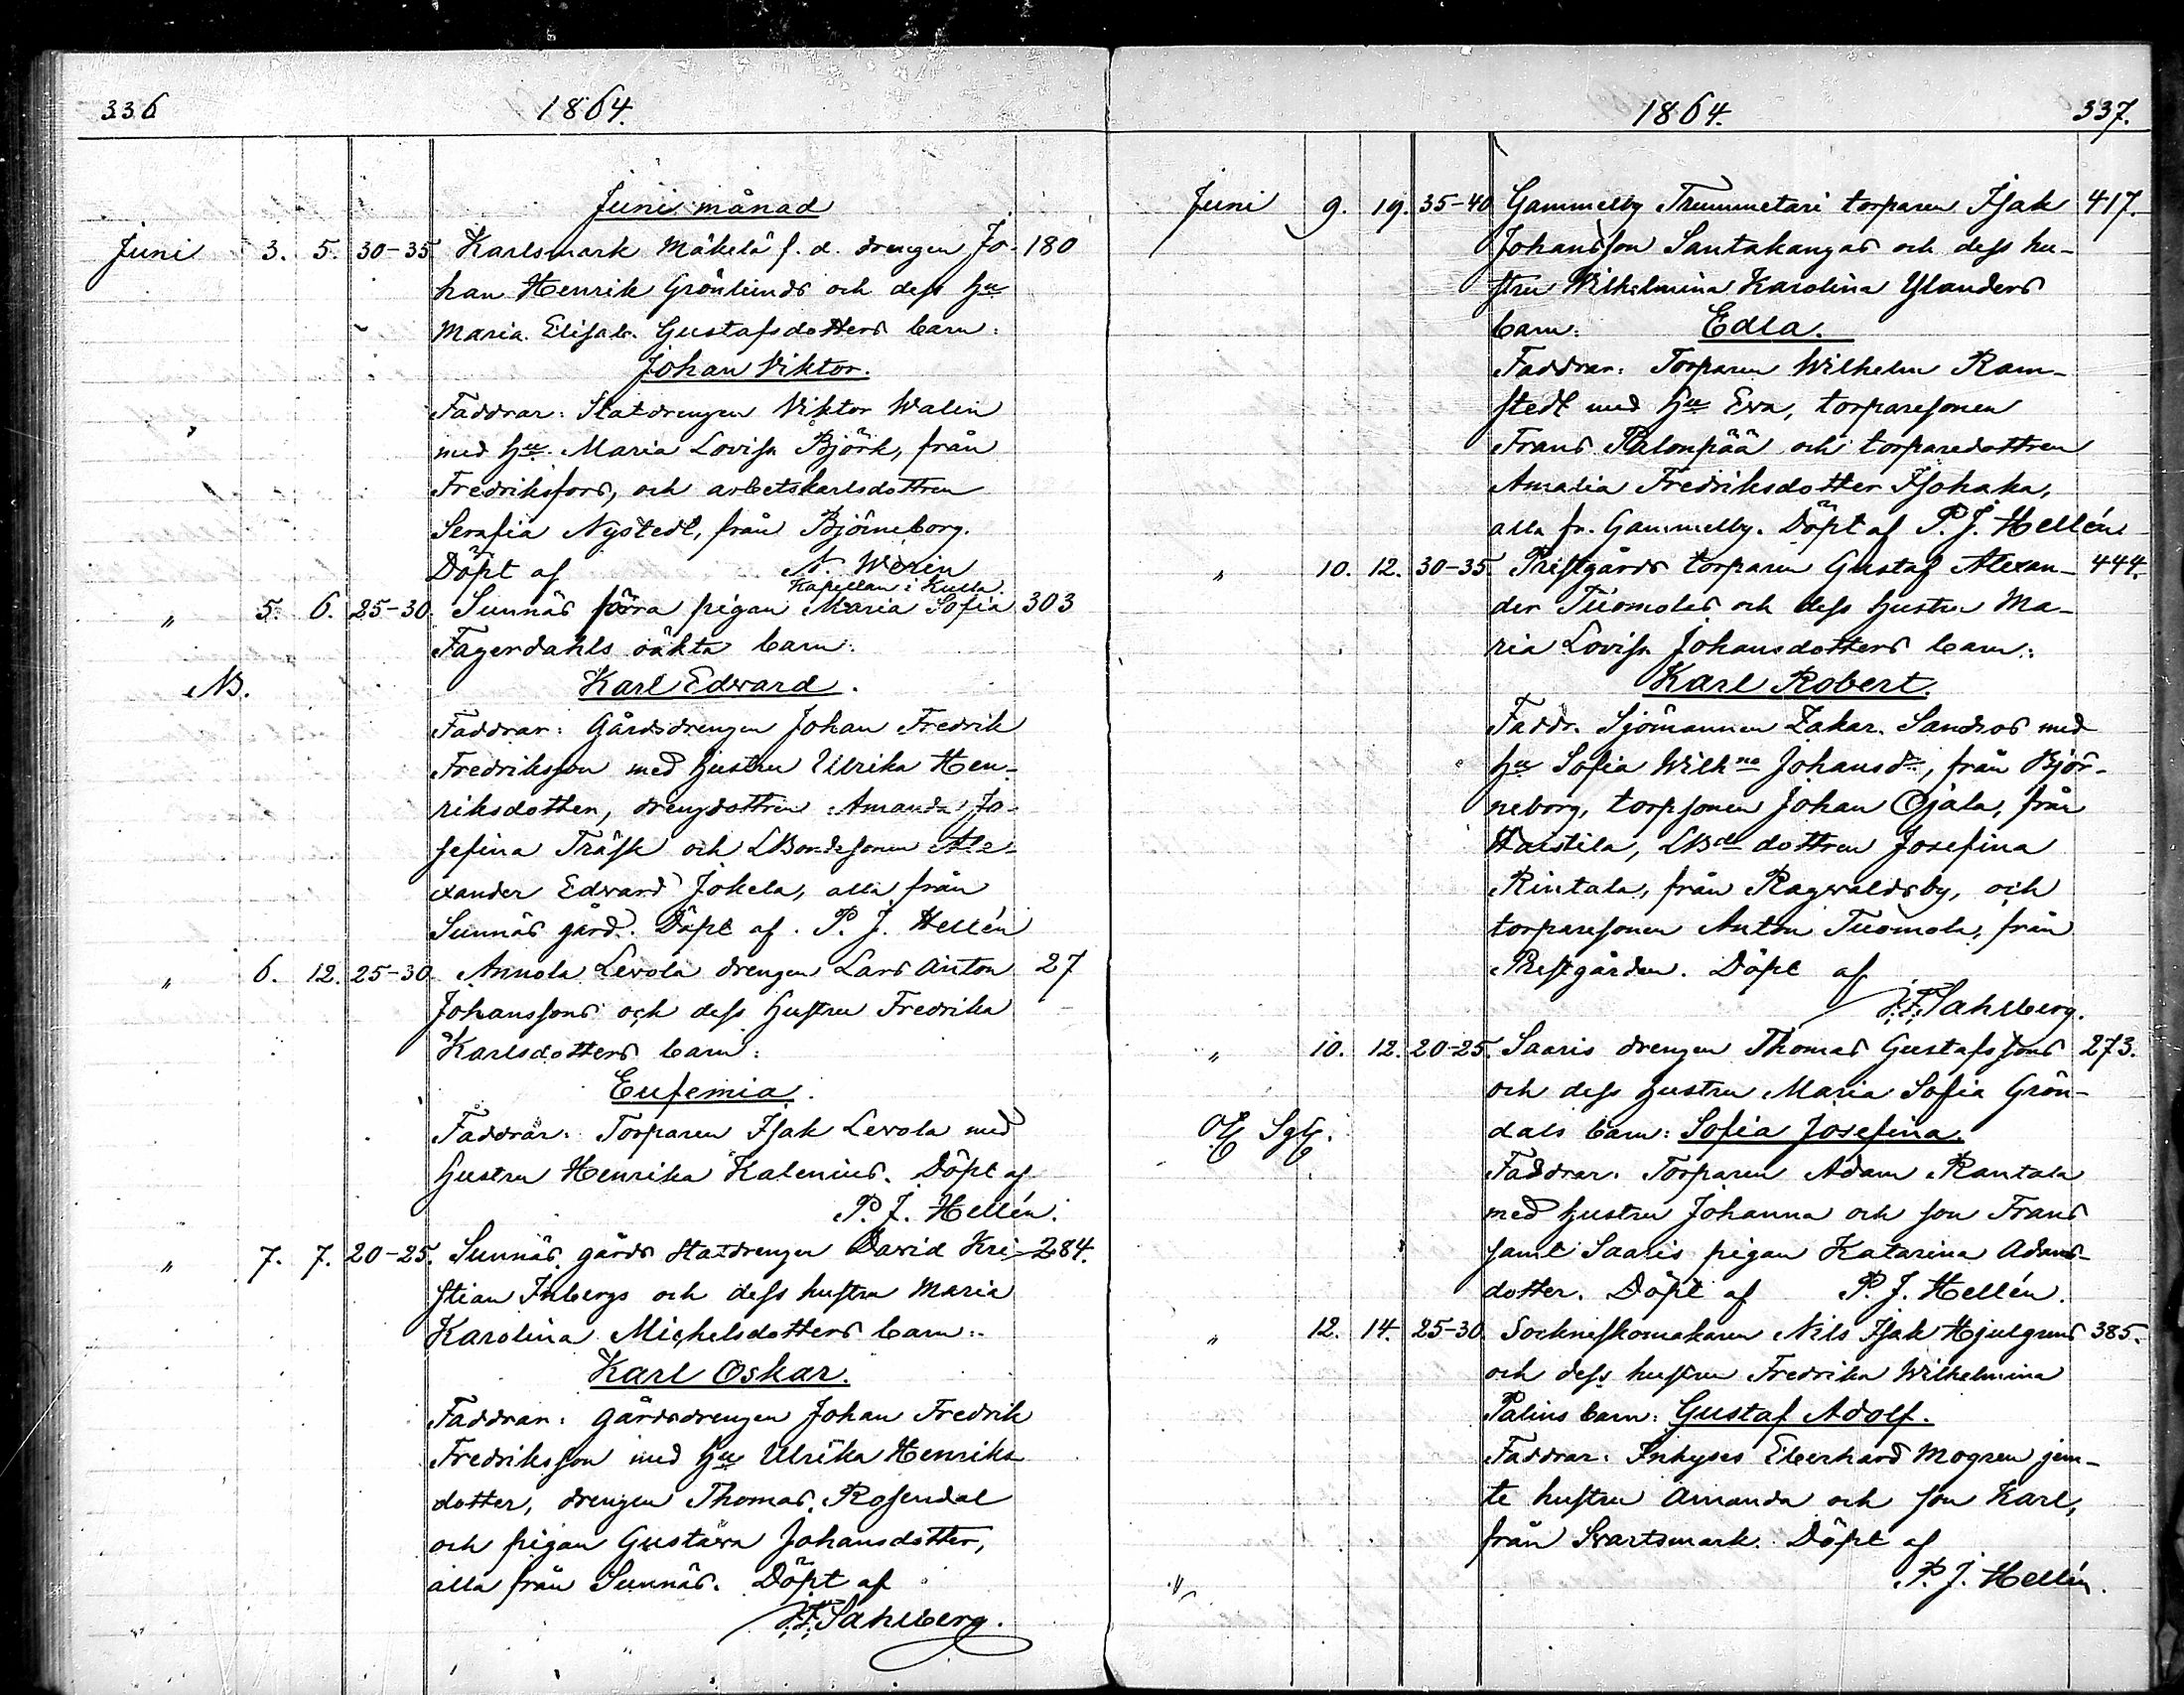 336
1864.
Juni månad
Juni 3. 5. 30-35 Karlsmark Mäkelä f. d. drengen Jo- 180
han Henrik Grönlunds och dess Hu
Maria Elisab. Gustafsdotters barn:
Johan Viktor.
Faddrar: Statdrengen Viktor Walin
med Hu Maria Lovisa Björk, från
Fredriksfors, och arbetskarlsdottren
Serafia Nystedt, från Björneborg.
Döpt af N. Werin
Kapellan i Kulla.
" 5. 6. 25-30. Sunnäs förra pigan Maria Sofia 303
Fagerdahls oäkta barn:
NB. Karl Edward.
Faddrar: Gårdsdrengen Johan Fredrik
Fredriksson med hustru Ulrika Hen-
riksdotter, drengdottren Amanda Jo-
sefina Träsk och LBondesonen Ale-
xander Edward Jokela, alla från
Sunnäs gård. Döpt af P. J. Hellén
" 6. 12. 25-30 Annola Levola drengen Lars Anton 27
Johanssons och dess hustru Fredrika
Karlsdotters barn:
Eufemia.
Faddrar: Torparen Isak Levola med
hustru Henrika Kalenius. Döpt af
P. J. Hellén.
" 7. 7. 20-25. Sunnäs gårds Statdrengen David Kri- 284.
stian Inbergs och dess hustru Maria
Karolina Michelsdotters barn:
Karl Oskar.
Faddrar: Gårdsdrengen Johan Fredrik
Fredriksson med Hu Ulrika Henriks-
dotter, drengen Thomas Rosendal
och pigan Gustava Johansdotter,
alla från Sunnäs. Döpt af
J.F. Sahlberg.
1864.
337.
Juni 9. 19. 35-40 Gammelby Trummetari torparen Isak 417.
Johansson Santakangas och dess hu-
stru Wilhelmina Karolina Ylanders
barn: Edla.
Faddrar: Torparen Wilhelm Ram-
stedt med Hu Eva, torparesonen
Frans Palonpää och torparedottren
Amalia Fredriksdotter Isohaka,
alla fr. Gammelby. Döpt af P. J. Hellén
" 10. 12. 30-35. Prestgårds torparen Gustaf Alexan- 444.
der Tuomolas och dess hustru Ma-
ria Lovisa Johansdotters barn:
Karl Robert.
Faddr. Sjömannen Zakar. Sandros med
Hu Sofia Wilhna Johansdr, från Björ-
neborg, torpsonen Johan Ojala, från
Haistila, LBde dottren Josefina
Rintala, från Ragvaldsby, och
torparesonen Anton Tuomola, från
Prestgården. Döpt af
J.F. Sahlberg.
" 10. 12. 20-25. Saaris drengen Thomas Gustafssons 273.
och dess hustru Maria Sofia Grön-
dals barn: Sofia Josefina.
Faddrar: Torparen Adam Rantala
med hustru Johanna och son Frans
samt Saaris pigan Katarina Adams-
dotter. Döpt af P. J. Hellén.
" 12. 14. 25-30 Sockneskomakaren Nils Isak Hjulgrens 385.
och dess hustru Fredrika Wilhelmina
Palins barn: Gustaf Adolf.
Faddrar: Inhyses Eberhard Mogren jem-
te hustru Amanda och son Karl,
från Svartsmark. Döpt af
P. J. Hellén.